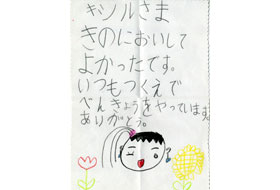 キソルさま
きのにおいして
よかったです。
いつもつくえで
べんきょうをやっています。
ありがとう。